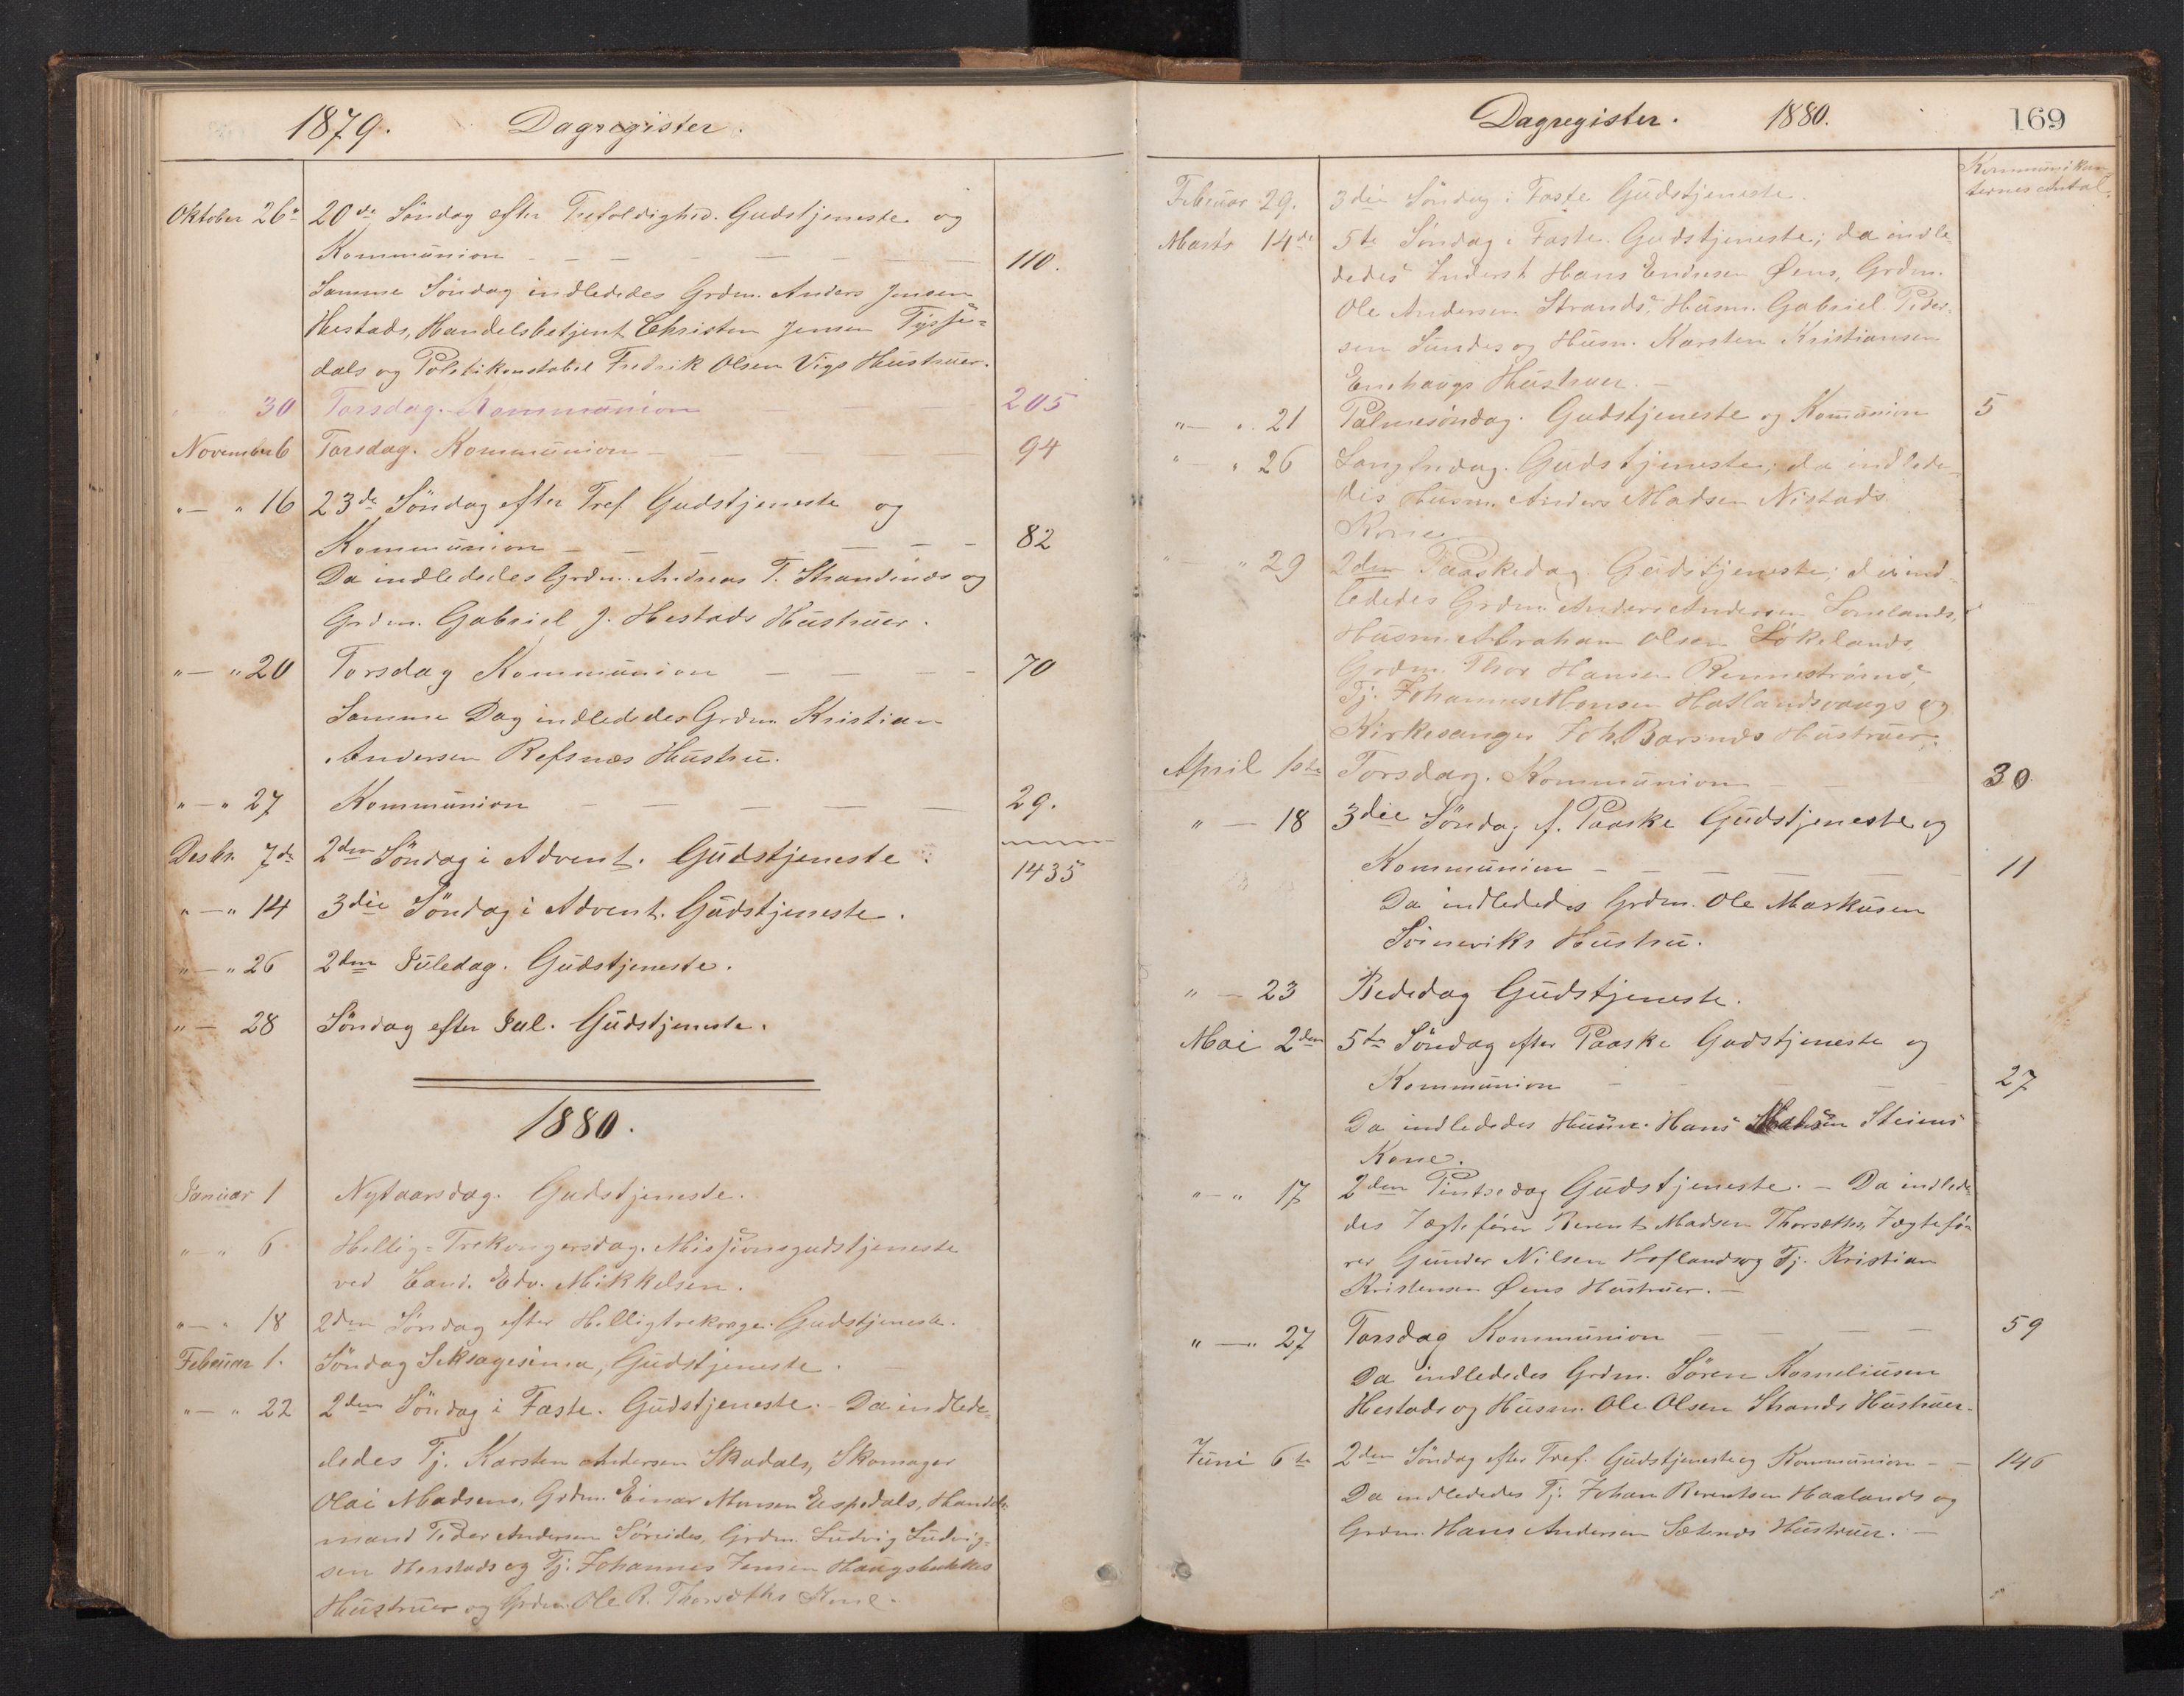 1879. Dagregister.
Oktober 26de 20de Söndag efter Trefoldighed. Gudstjeneste og
Kommunion — — — — — — 110.
Samme Söndag indlededes Grdm. Anders Jensen
Hestads, Handelsbetjent Christen Jensen Tysse=
dals og Politikonstabel Fredrik Olsen Vigs Hustruer.
30 Torsdag. Kommunion — — — 205
November 6 Torsdag. Kommunion — — — 94
" — " 16 23de Söndag efter Tref. Gudstjeneste og
Kommunion — — — — — — 82
Da indlededes Grdm. Andreas T. Strandenæs og
Grdm. Gabriel J. Hestads Hustruer.
" — " 20 Torsdag Kommunion — — — — 70
Samme Dag indlededes Grdm. Kristian
Andersen Refsnæs Hustru.
" — " 27 Kommunion — — — — — 29.
Desbr. 7de 2den Söndag i Advent. Gudstjeneste.
1435
" — " 14 3die Söndag i Advent. Gudstjeneste.
" — " 26 2den Juledag. Gudstjeneste.
" — 28 Söndag efter Jul. Gudstjeneste.
1880.
Januar 1 Nytaarsdag. Gudstjeneste.
" — " 6 Hellig=Trekongersdag. Missionsgudstjeneste
ved Cand. Edv. Mikkelsen.
" — " 18 2den Söndag efter Helligtrekonger. Gudstjeneste.
Februar 1. Söndag Seksagesima, Gudstjeneste.
" — " 22 2den Söndag i Faste. Gudstjeneste. — Da indlede=
dedes Tj. Karsten Andersen Skadals, Skomager
Olai Madsens, Grdm. Einar Monsen Espedals, Handels=
mand Peder Andersen Söreides, Grdm. Ludvig Ludvig=
sen Herstads og Tj. Johannes Jensen Haugsbakkes
Hustruer og Grdm. Ole R. Thorsæths Kone.
Dagregister. 1880. 169
Kommunikan=
ternes Antal.
Februar 29. 3die Söndag i Faste Gudstjeneste.
Marts 14de 5te Söndag i Faste. Gudstjeneste; da indle=
dedes Inderst Hans Endresen Øens, Grdm.
Ole Andersen Strands, Husm. Gabriel Peder=
sen Sundes og Husm. Karsten Kristiansen
Enehaugs Hustruer. —
" — " 21 Palmesöndag. Gudstjeneste og Komunion 5
" — " 26 Langfredag. Gudstjeneste; da indlede=
des Husm. Anders Madsen Nistads
Kone.
" — " 29 2den Paaskedag. Gudstjeneste; da ind=
lededes Grdm. Anders Andersen Sörelands,
Husm. Abraham Olsen Lökelands,
Grdm. Thor Hansen Renneströms,
Tj. Johannes Monsen Hatlandsvaags og
Kirkesanger Joh. Barsnæs Hustruer.
April 1ste Torsdag. Kommunion — — 30.
" — 18 3die Söndag f. Paaske Gudstjeneste og
Kommunion — — — — — 11
Da indlededes Grdm. Ole Markusen
Söreviks Hustru.
" — 23 Bededag Gudstjeneste.
Mai 2den 5te Söndag efter Paaske Gudstjeneste og
Kommunion — — — — — 27
Da indlededes Husm. Hans Madsen Steins
Kone.
" — " 17 2den Pintsedag Gudstjeneste. — Da indlede=
des Jægtefører Berent Madsen Thorsæths, Jægtefö=
rer Gunder Nilsen Hoflands og Tj. Kristian
Kristensen Øens Hustruer. —
" — " 27 Torsdag Kommunion — — — — 59
Da indlededes Grdm. Sören Korneliusen
Hestads og Husm. Ole Olsen Strands Hustruer.
Juni 6te 2den Söndag efter Tref. Gudstjeneste og Kommunion — — 146
Da indlededes Tj. Johan Berentsen Haalands og
Grdm. Hans Andersen Sætenæs Hustruer. —